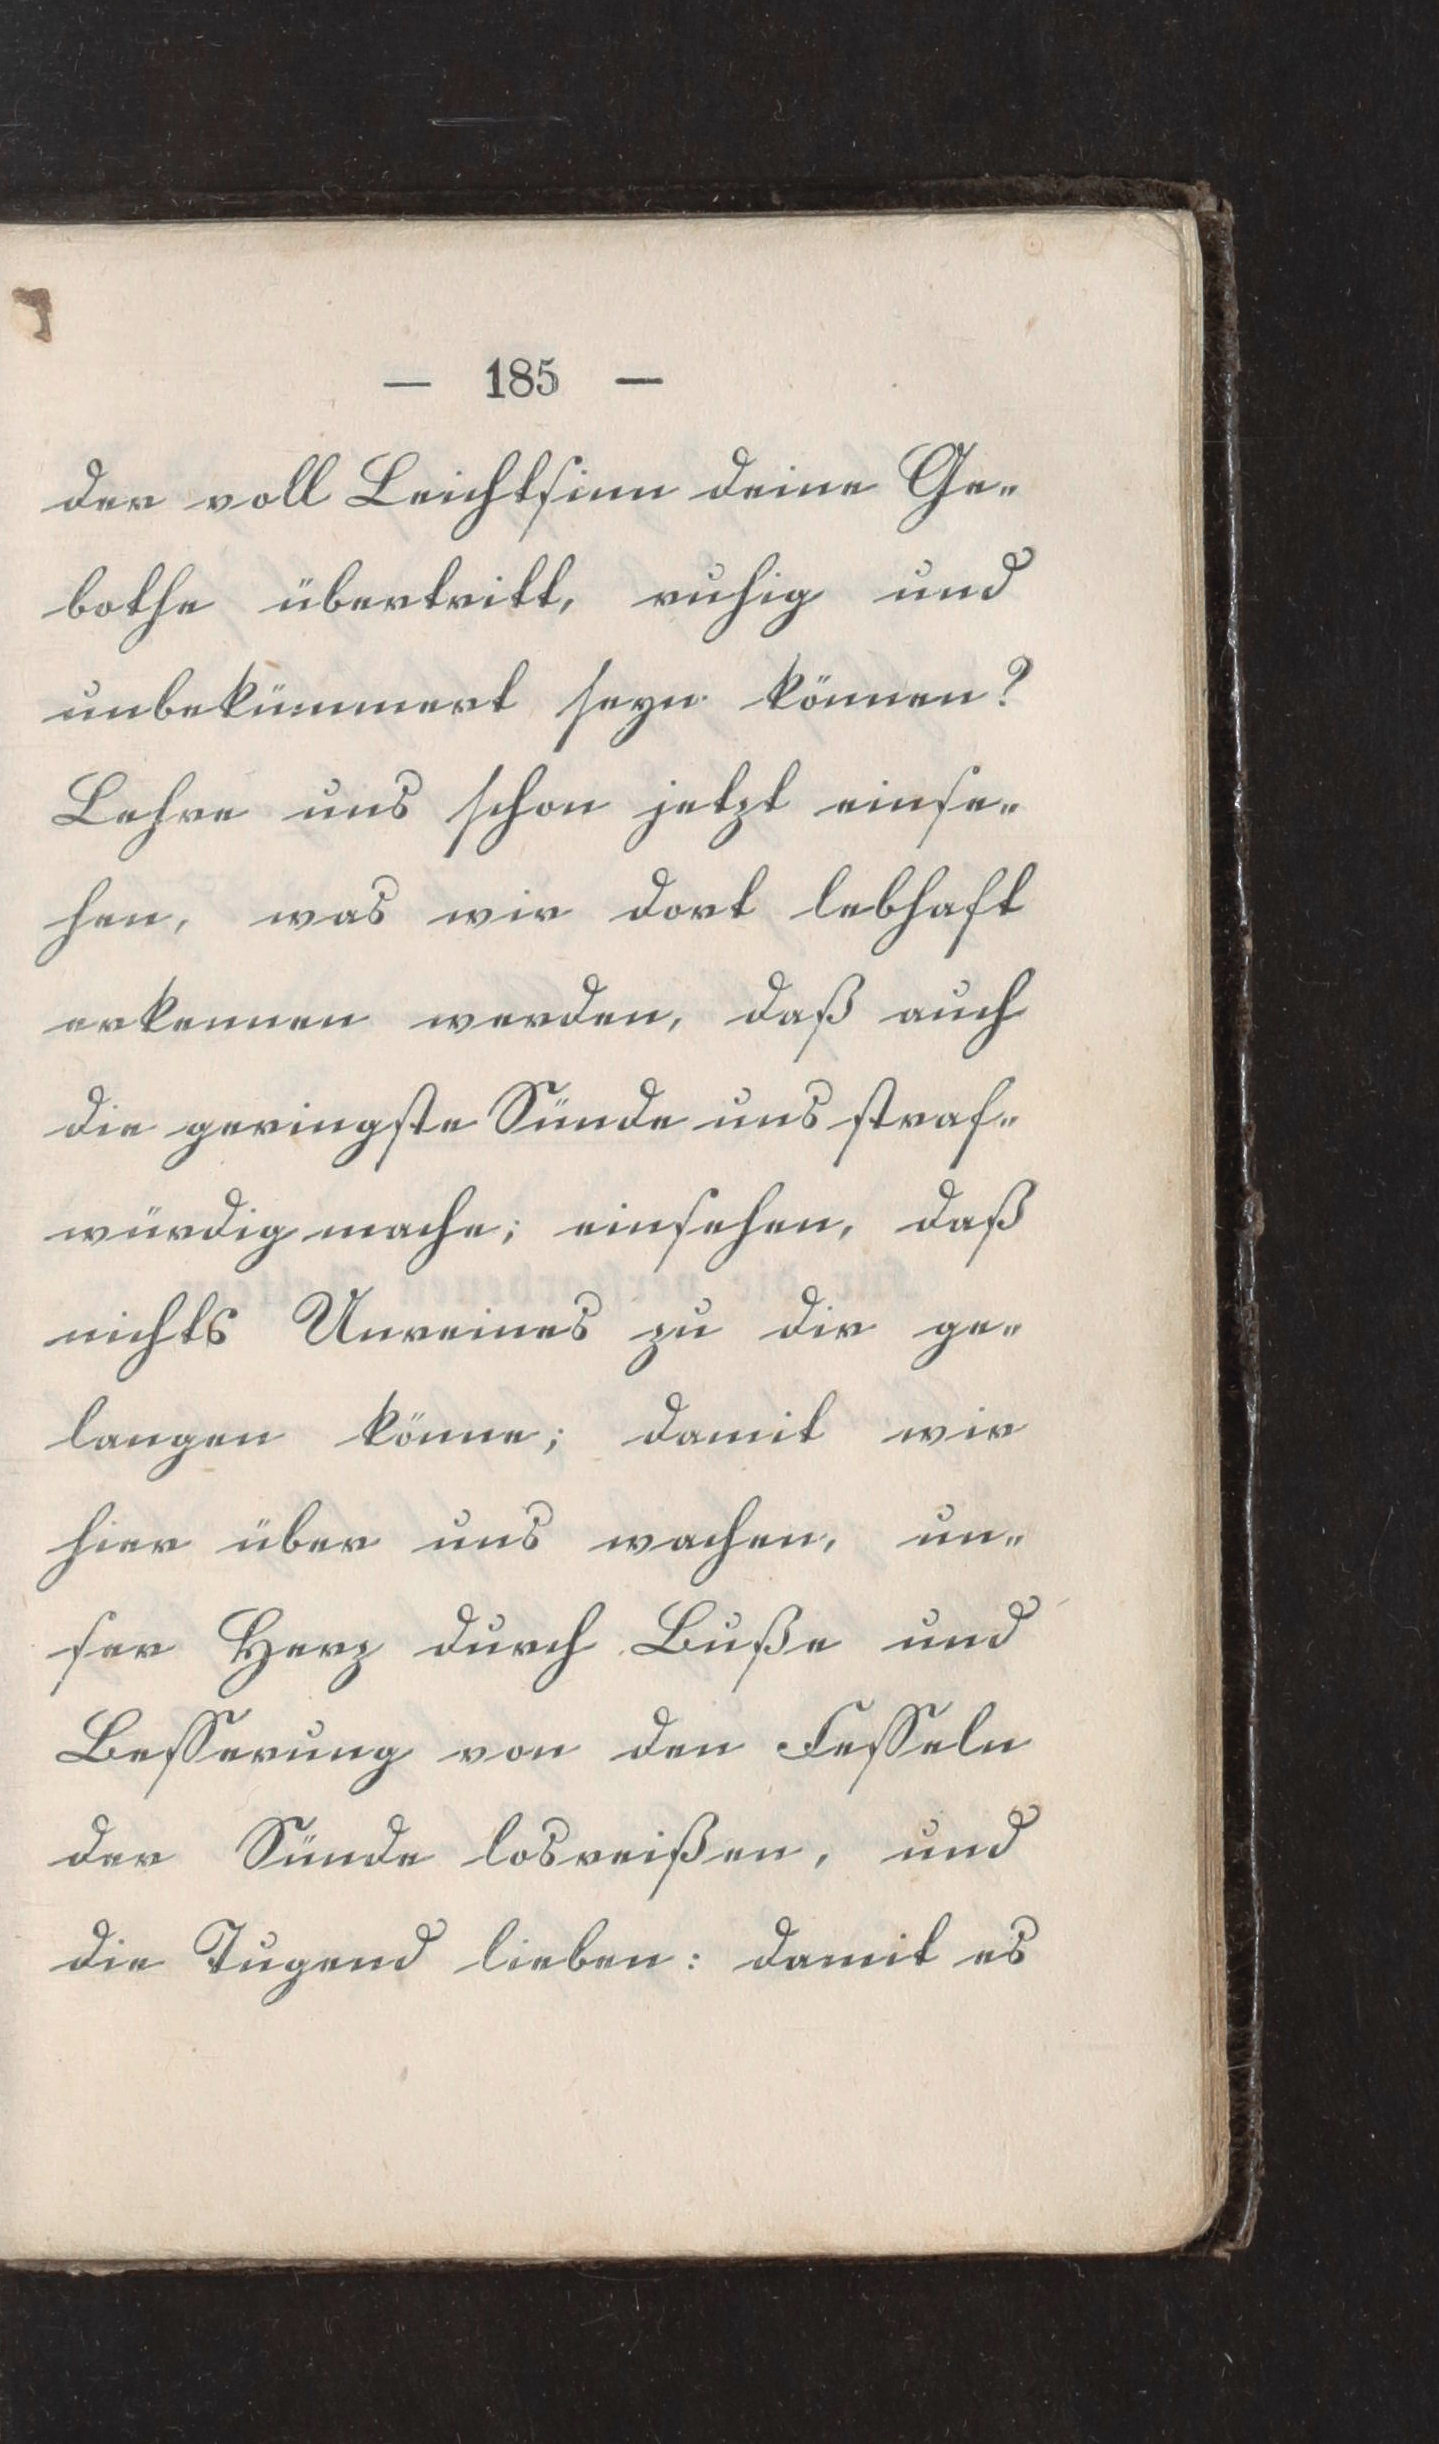 — 185 —
der voll Leichtsinn deine Ge-
bothe übertritt, ruhig und
unbekümmert seyn können?
Lehre uns schon jetzt einse-
hen, was wir dort lebhaft
erkennen werden, daß auch
die geringste Sünde uns straf-
würdig mache; einsehen, daß
nichts Unreines zu dir ge-
langen könne; damit wir
hier über uns wachen, un-
ser Herz durch Buße und
Besserung von den Fesseln
der Sünde losreißen, und
die Tugend lieben: damit es